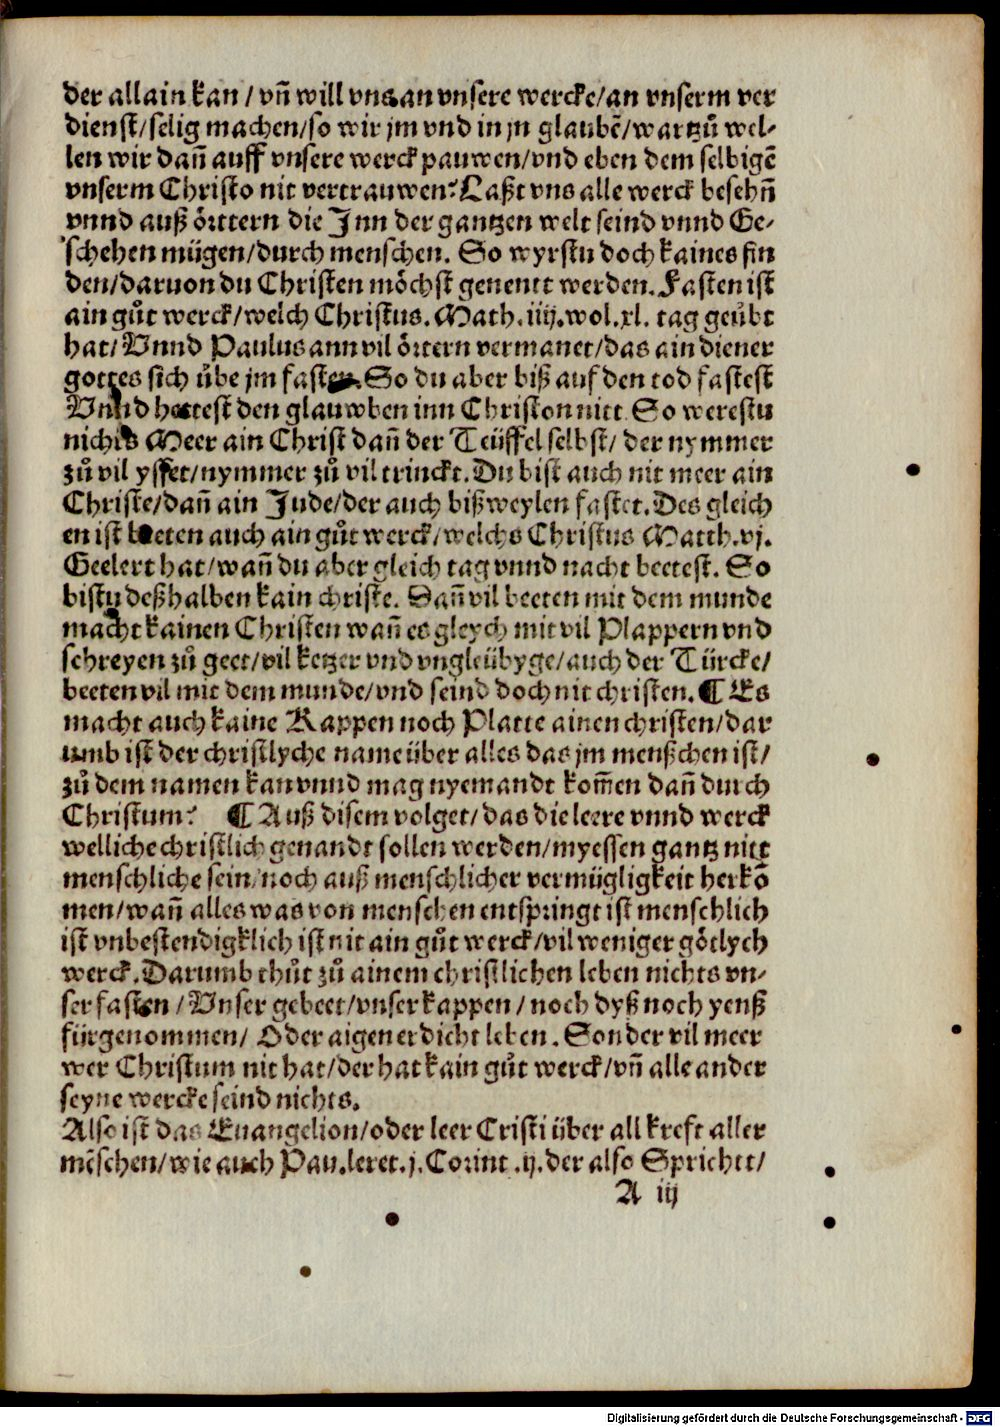 der allain kan / vñ will vns an vnsere wercke/an vnserm ver
dienst/selig machen/so wir jm vnd in jn glaubẽ/wartzů wel-
len wir dañ auff vnsere werck pauwen/vnd eben dem selbigẽ
vnserm Christo nit vertrauwen? Laßt vns alle werck besehñ
vnnd auß örttern die Jnn der gantzen welt seind vnnd Ge-
schehen mügen/durch menschen. So wyrstu doch kaines fin
den/daruon du Christen möchst genentt werden. Fasten ist
ain gůt werck/welch Christus. Math. iiij. wol. xl. tag geübt
hat/ Vnnd Paulus ann vil örtern vermanet/das ain diener
gottes sich übe jm fasten. So du aber biß auf den tod fastest
Vnnd hettest den glauwben inn Christon nitt So werestu
nichts Meer ain Christ dañ der Teüffel selbst/ der nymmer
zů vil ysset/nymmer zů vil trinckt. Du bist auch nit meer ain
Christe/dañ ain Jude/der auch bißweylen fastet. Des gleich
en ist beeten auch ain gůt werck/welchs Christus Matth. vj.
Geelert hat/wañ du aber gleich tag vnnd nacht beetest. So
bistu deßhalben kain christe. Dañ vil beeten mit dem munde
macht kainen Christen wañ es gleych mit vil Plappern vnd
schreyen zů geet/vil ketzer vnd vngleübyge/auch der Türcke/
beeten vil mit dem munde/vnd seind doch nit christen. ¶ Es
macht auch kaine Kappen noch Platte ainen christen/dar
umb ist der christlyche name über alles das jm menßchen ist/
zů dem namen kan vnnd mag nyemandt kom̃en dañ durch
Christum? ¶ Auß disem volget/das die leere vnnd werck
welliche christlich genandt sollen werden/myessen gantz nitt
menschliche sein/noch auß menschlicher vermügligkeit herkõ
men/wañ alles was von menschen entspringt ist menschlich
ist vnbestendigklich ist nit ain gůt werck/vil weniger götlych
werck. Darumb thůt zů ainem christlichen leben nichts vn-
ser fasten / Vnser gebeet/vnser kappen / noch dyß noch yenß
fürgenommen/ Oder aigen erdicht leben. Sonder vil meer
wer Christum nit hat/der hat kain gůt werck/vñ alle ander
seyne wercke seind nichts.
Also ist das Euangelion/oder leer Cristi über all kreft aller
mẽschen/wie auch Pau. leret. j. Corint. ij. der also Sprichtt/
A iij
Digitalisierung gefördert durch die Deutsche Forschungsgemeinschaft - DFG